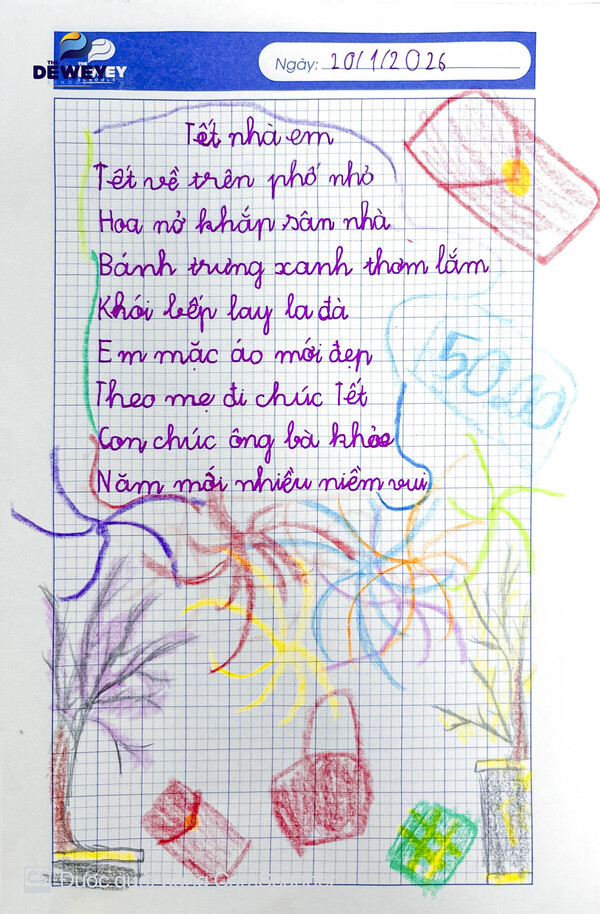 THE DEWEY
SCHOOLS
Ngày: 20/1/2026
Tết nhà em
Tết về trên phố nhỏ
Hoa nở khắp sân nhà
Bánh trưng xanh thơm lắm
Khói bếp lay la đà
Em mặc áo mới đẹp
Theo mẹ đi chúc Tết
Con chúc ông bà khỏe
Năm mới nhiều niềm vui